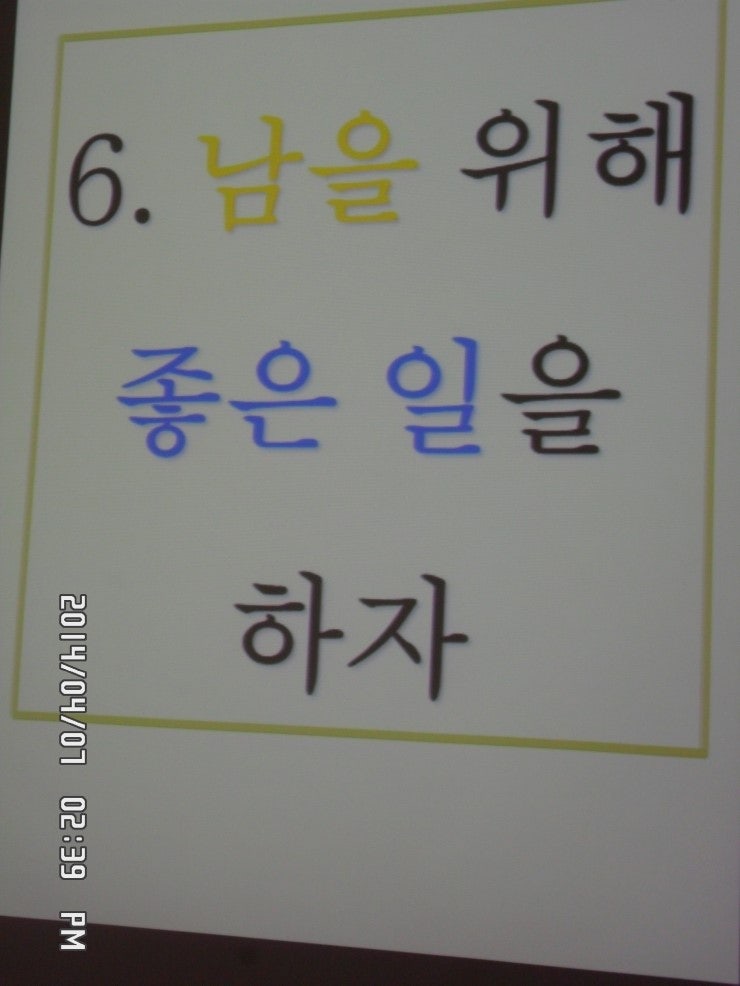 6. 남을 위해
좋은 일을
하자
2014/04/07 02:39 PM